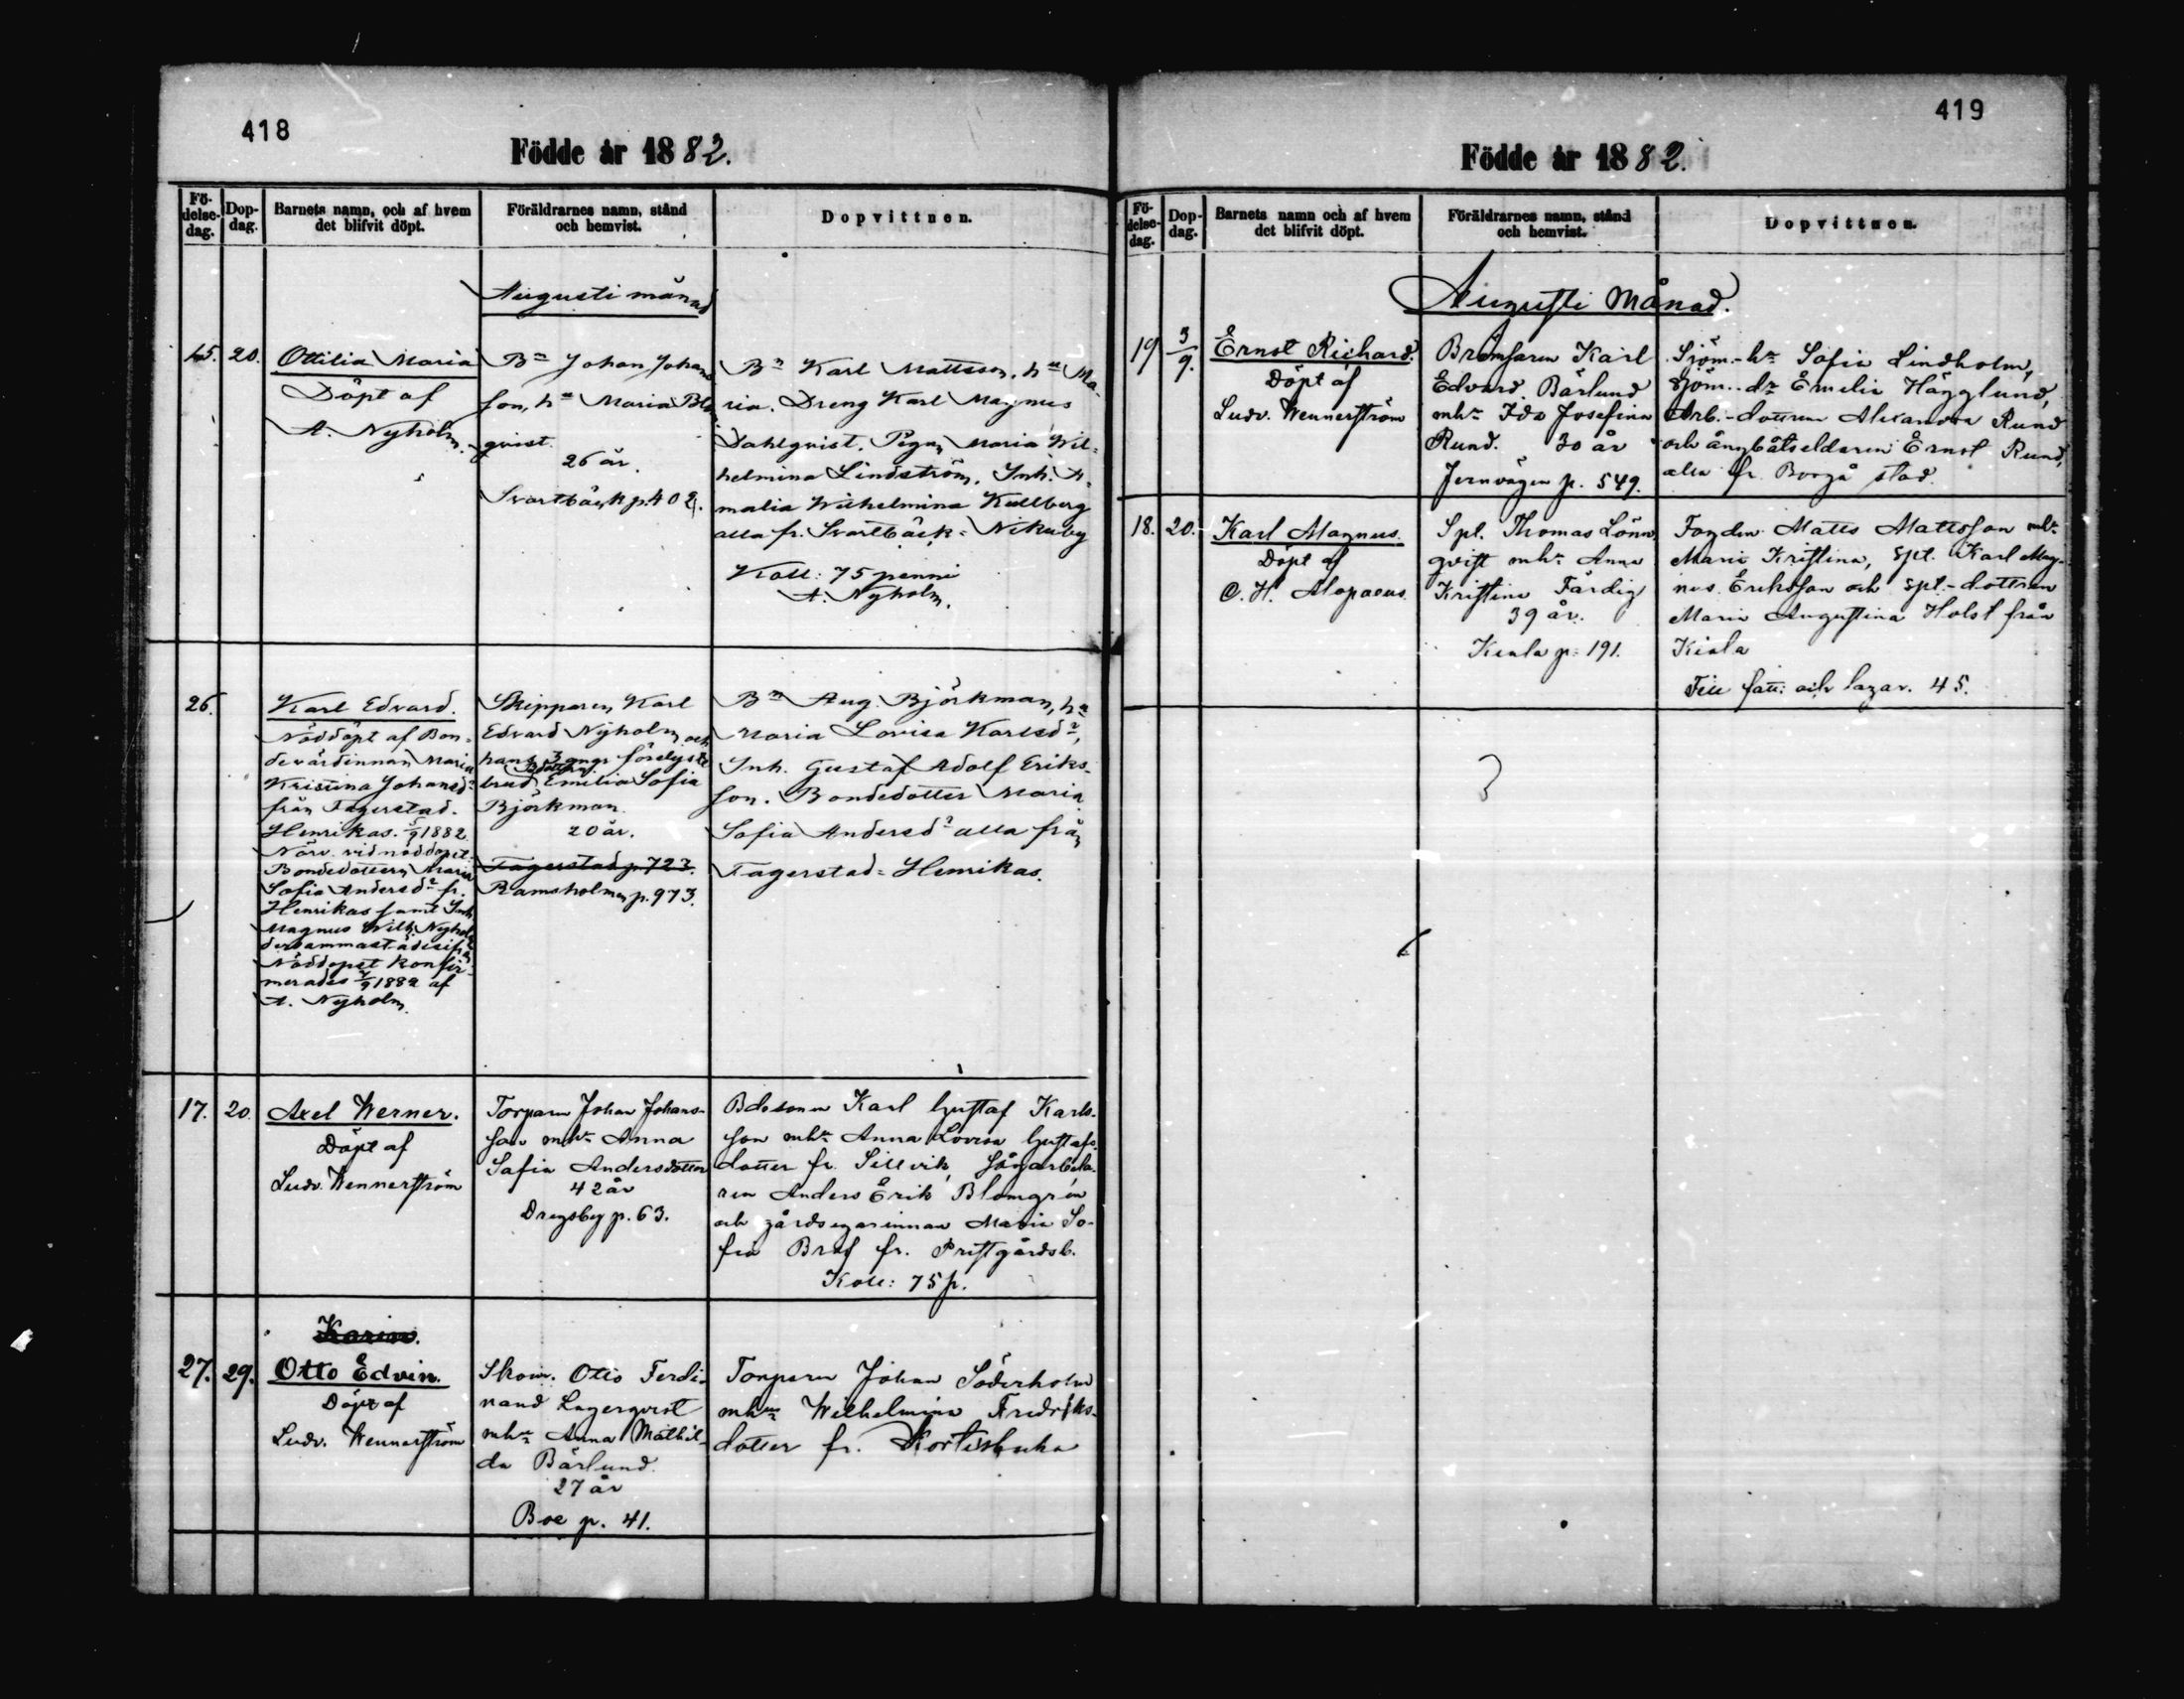 418
Födde år 1882.
Fö-
delse-
dag.
Dop-
dag.
Barnets namn, och af hvem
det blifvit döpt.
Föräldrarnes namn, stånd
och hemvist.
Dopvittnen.
Augusti månad
15. 20.
Ottilia Maria
Döpt af
A. Nyholm.
Bn Johan Johans
son, hn Maria Blom
qvist.
26 år.
Svartbäck p. 402.
Bn Karl Mattsson, hn Ma-
ria. Dreng Karl Magnus
Dahlqvist. Pigan Maria Wil-
helmina Lindström. Inh. A-
malia Wilhelmina Kullberg
alla fr. Svartbäck = Nikuby
Koll: 75 penni
A. Nyholm.
26.
Karl Edvard.
Nöddöpt af Bon-
devärdinnan Maria
Kristina Johansdr
från Fagerstad-
Henrikas. 5/9 1882
Närv. vid nöddopet:
Bondedottern Maria
Sofia Andersdr fr.
Henrikas samt Inh.
Magnus Wilh. Nyholm
dersammastädesifrån
Nöddopet konfir-
merades 7/9 1882 af
A. Nyholm.
Skepparen Karl
Edvard Nyholm och
hans 3 gngr förelyste
brud Bdottren Emilia Sofia
Björkman.
20 år.
Fagerstad p. 723.
Ramsholmen p. 973.
Bn Aug. Björkman, hn
Maria Lovisa Karlsdr,
Inh. Gustaf Adolf Eriks-
son. Bondedotter Maria
Sofia Andersdr alla från
Fagerstad = Henrikas.
17. 20.
Axel Werner.
Döpt af
Ludv. Wennerström
Torparen Johan Johans-
son mhn Anna
Sofia Andersdotter
42 år
Dregsby p. 63.
Bdesonen Karl Gustaf Karls-
son mhn Anna Lovisa Gustafs-
dotter fr. Sillvik, sågarbeta-
ren Anders Erik Blomgrén
och gårdsegarinnan Maria So-
fia Braf fr. Prestgårdsb.
Koll: 75 p.
Karin.
27. 29.
Otto Edvin.
Döpt af
Ludv. Wennerström
Skom. Otto Ferdi-
nand Lagerqvist
mhn Anna Mathil-
da Bärlund.
27 år
Boe p. 41.
Torparen Johan Söderholm
mhn Wilhelmina Fredriks-
dotter fr.
419
Födde år 1882.
Fö-
delse-
dag.
Dop-
dag.
Barnets namn och af hvem
det blifvit döpt.
Föräldrarnes namn, stånd
och hemvist.
Dopvittnen.
Augusti Månad.
19 3/9.
Ernst Richard.
Döpt af
Ludv. Wennerström
Bromsaren Karl
Edvard Bärlund
mhn Ida Josefina
Rund. 30 år
Jernvägen p. 549.
Sjöm.-hn Sofia Lindholm,
sjöm.-dr Emelie Hägglund,
Arb.-dottren Alexandra Rund
och ångbåtseldaren Ernst Rund,
alla fr. Borgå stad.
18. 20.
Karl Magnus.
Döpt af
C. H. Alopaeus.
Spl. Thomas Lönn
qvist mhn Anna
Kristina Färdig
39 år.
Kiala p. 191.
Fogden Matts Mattsson mhn
Maria Kristina, spl. Karl Mag-
nus Eriksson och spl-dottren
Maria Augustina Holst från
Kiala
Till fatt: och lazar. 45.